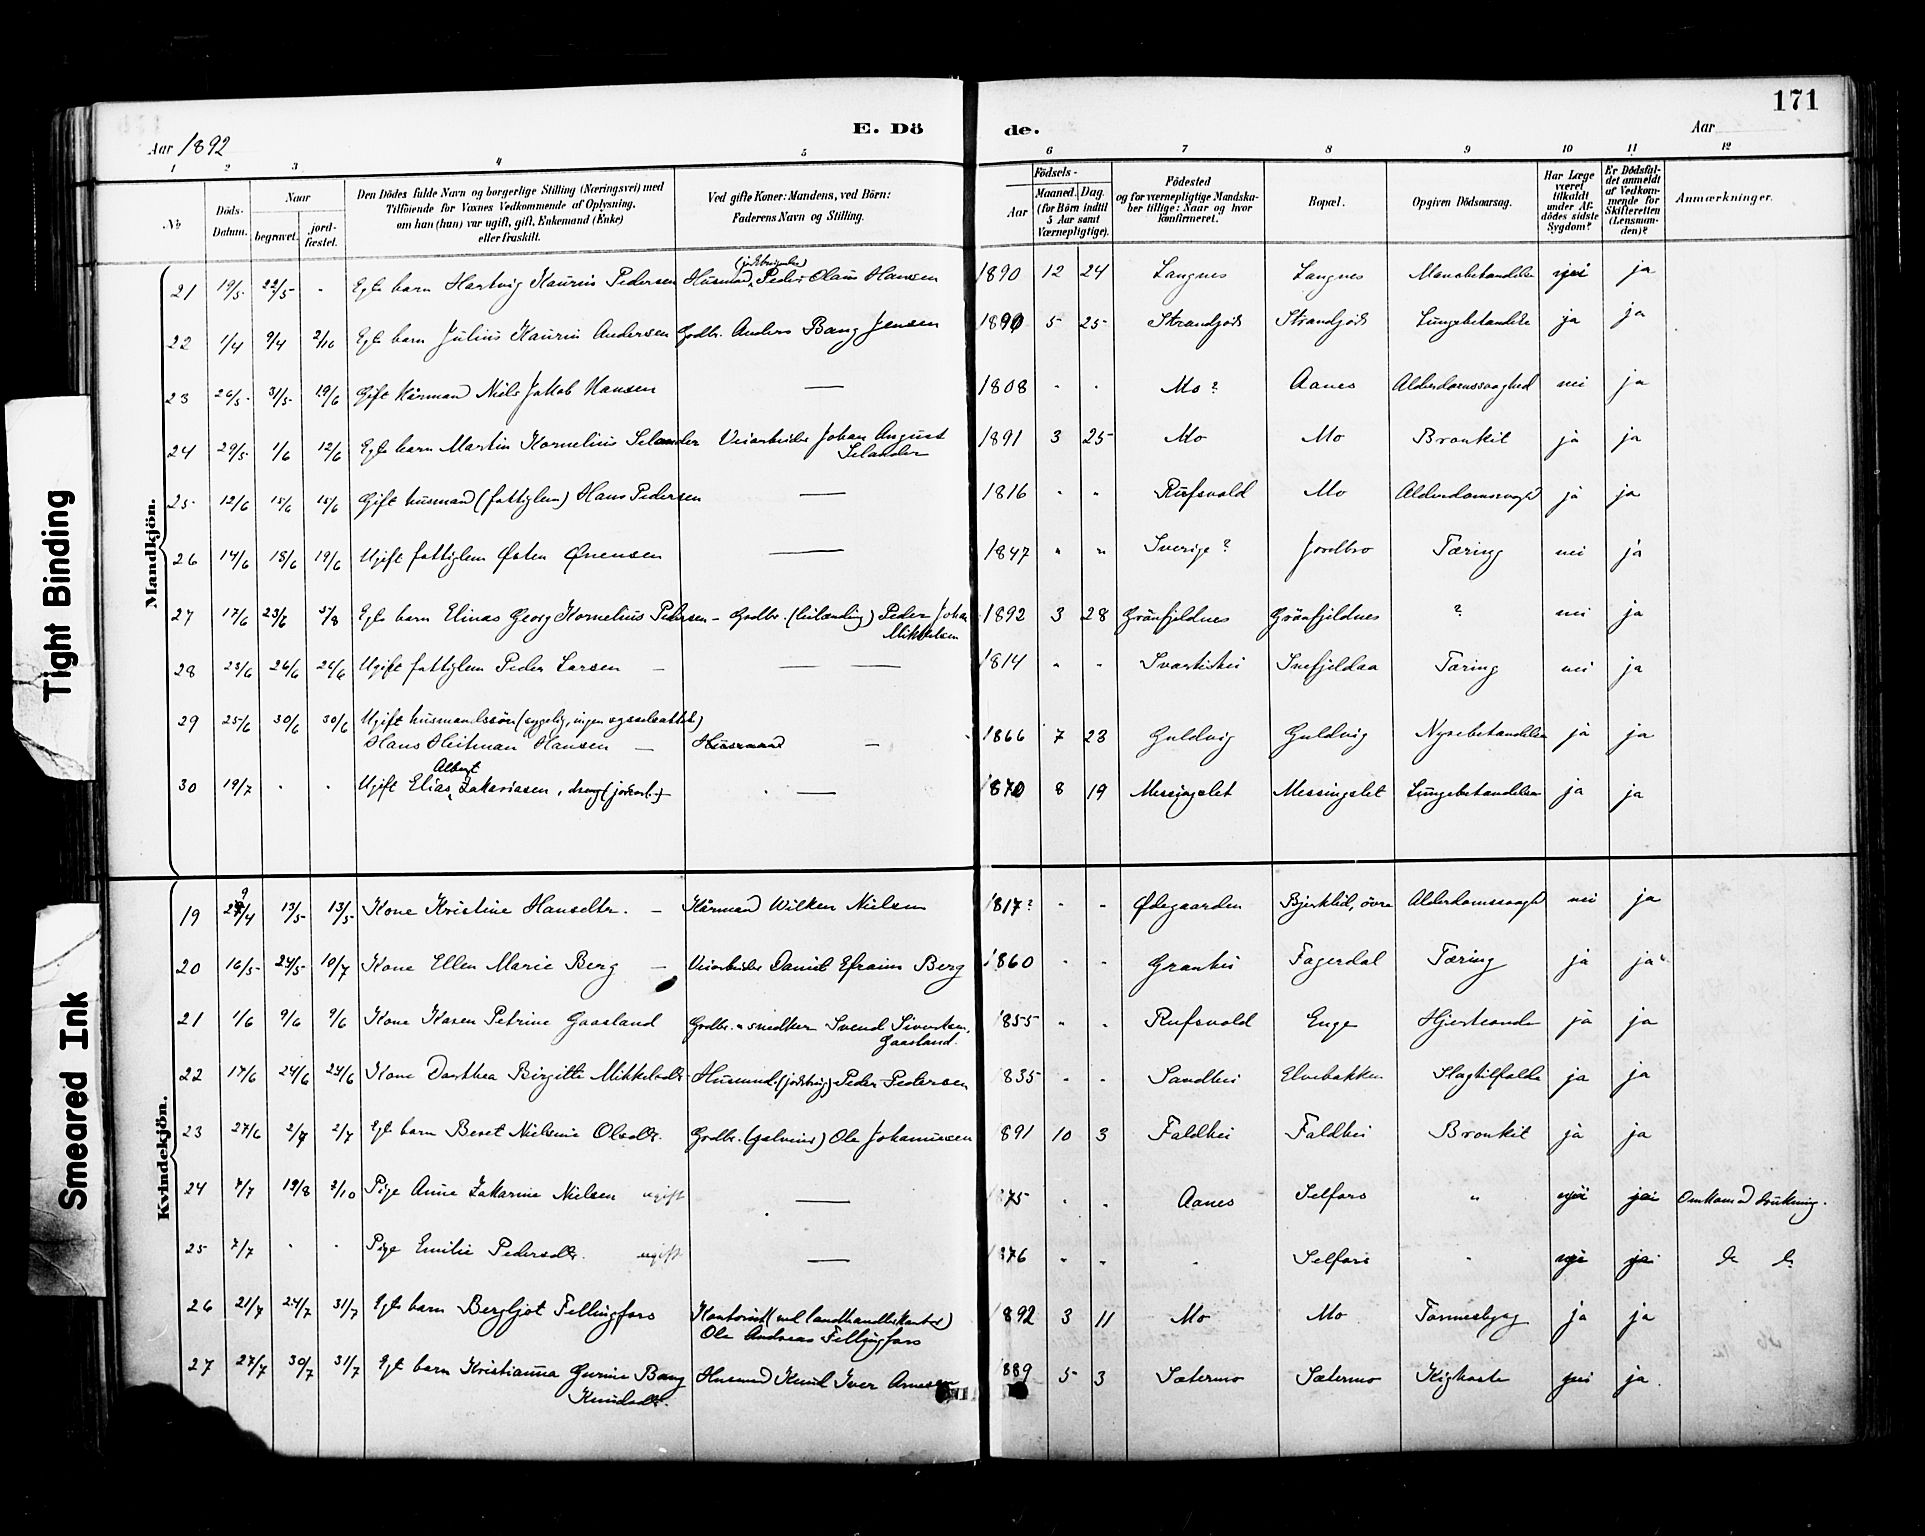 171
E. Dö de.
Aar 1892
Aar
1 2 3 4 5 6 7 8 9 10 11 12
No
Döds-Datum.
Naar
begravet.
jord-fæstet.
Den Dödes fulde Navn og borgerlige Stilling (Næringsvei) med
Tilföiende for Voxnes Vedkommende af Oplysning,
om han (hun) var ugift, gift, Enkemand (Enke)
eller fraskilt.
Ved gifte Koner: Mandens, ved Börn:
Faderens Navn og Stilling.
Födsels-
Aar
Maaned. Dag.
(for Börn indtil
5 Aar samt
Værnepligtige).
Födested
og for værnepligtige Mandska-
ber tillige: Naar og hvor
konfirmeret.
Bopæl.
Opgiven Dödsaarsag.
Har Læge
været
tilkaldt
under Af-
dödes sidste
Sygdom?
Er Dödsfal-
det anmeldt
af Vedkom-
mende for
Skifteretten
(Lensman-
den)?
Anmærkninger.
Mandkjön.
21 19/5 22/5 - Egte barn Hartvig Kaurin Pedersen Husmand, Peder Olaus Hansen 1890 12 24 Langnes Langnes nei ja
22 1/4 9/4 2/10 Egte barn Julius Kaurin Andersen Grdbr. Anders Bang Jensen 1890 5 25 Strandjord Strandjord Lungebetændelse ja ja
23 26/5 31/5 19/6 Gift Kårmand Niels Jakob Hansen — 1808 - - Mo? Aanes Alderdomssvaghed nei ja
24 29/5 1/6 12/6 Egte barn Martin Kornelius Selander Veiarbeider Johan August
Selander 1891 3 25 Mo Mo Bronkit ja ja
25 12/6 15/6 15/6 Gift husmand (fattiglem) Hans Pedersen — 1816 " " Rufsvold Mo Alderdomssvaghd ja ja
26 14/6 18/6 19/6 Ugift fattiglem Østen Ørensen — 1847 " " Sverige? Jordbro Tæring nei ja
27 17/6 23/6 5/8 Egte barn Elinas Georg Kornelius Pedersen - Grdbr. (leilænding) Peder Johan
Mikkelsen 1892 3 28 Grönfjeldnes Grönfjeldnes ? nei ja
28 23/6 26/6 26/6 Ugift fattiglem Peder Larsen — 1814 " " Svartishei Svefjeldaa Tæring nei ja
29 25/6 30/6 30/6 Ugift husmandssön (sygelig, ingen sysselsættelse)
Hans Heitman Hansen — Husmand — 1866 7 23 Guldvig Guldvig Nyrebetændelse ja ja
Albert
30 19/7 - - Ugift Elias Zakariassen, dreng (jordarb.) — 1870 8 19 Messingslet Messingslet Lungebetændelse ja ja
Kvindekjön.
19 29/4 13/5 13/5 Kone Kristine Hansdtr. — Kårmand Wilken Nielsen 1817? - - Ødegaarden Bjerklid, övre Alderdomssvaghd nei ja
20 16/5 24/5 10/7 Kone Ellen Marie Berg — Veiarbeider Daniel Efraim Berg 1860 - - Granhei Fagerdal Tæring ja ja
21 1/6 9/6 9/6 Kone Karen Petrine Gaasland Grdbr. & snedker Svend Sivertsen
Gaasland. 1855 " - Rufsvold Enge Hjerteonde ja ja
22 17/6 24/6 24/6 Kone Dorthea Birgitte Mikkelsdtr. Husmd. (jordbrug) Peder Pedersen 1835 - - Sandhei Elvebakken Slagtilfælde ja ja
23 27/6 2/7 2/7 Egt barn Beret Nielsine Olsdtr. Grdbr. (selveier) Ole Johannesen 1891 10 3 Faldhei Faldhei Bronkit ja ja
24 7/7 19/8 2/10 Pige Anne Zakarine Nielsen ugift — 1875 " " Aanes Selfors " nei ja Omkom ved drukning.
25 7/7 - - Pige Emilie Pedersdtr. ugift — 1876 - - - Selfors - nei ja do do
26 21/7 24/7 31/7 Egte barn Bergljot Fellingfors Kontorist (ved landhandlerkontor)
Ole Andreas Fellingfors 1892 3 11 Mo Mo ja ja
27 27/7 30/7 31/7 Egt barn Kristianna Gurine Bang
Knudsdtr. Husmand Knud Iver Arnesen 1889 5 3 Sætermo Sætermo Kighoste nei ja
Tight Binding
Smeared Ink